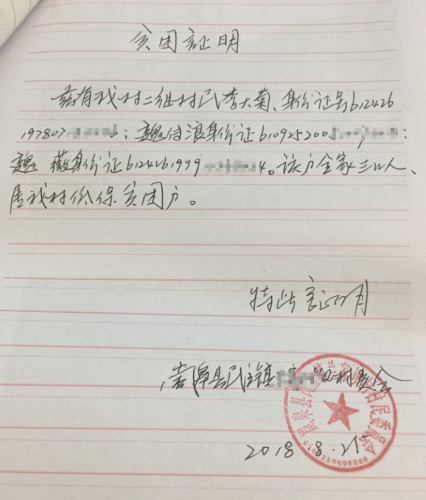 贫困証明
兹有我村二组村民李大菊、身份证号612426
197807 ；魏付浪身份证610925200 ；
魏 薇身份证6124261999 4。该户全家三口人、
居我村低保贫困户。
特此証明
岚皋县民主镇 村委会
2018.8.21